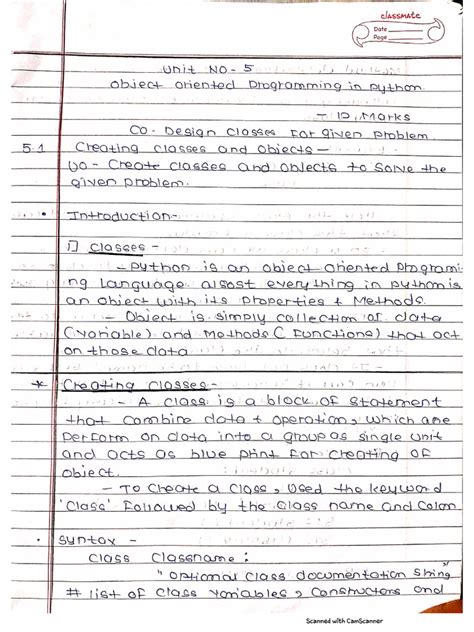 classmate
Date
Page
Unit No - 5
Object oriented Programming in Python.
- 12 Marks
CO - Design classes for given problem.
5.1 Creating classes and objects -
UO - Create classes and objects to solve the
given problem.
• Introduction -
i] classes -
- Python is an object oriented Programi-
ng Language alsost everything in python is
an object with its properties & Methods.
- Object is simply collection of data
(variable) and methods ( Functions) that act
on those data
* Creating classes -
- A class is a block of statement
that combine data & operation, which are
perform on data into a group as single unit
and acts as blue print for creating of
object.
- To Create a class, used the keyword
'class' followed by the class name and Colon
• Syntax -
Class Classname :
" optional class documentation string
# list of class variables, constructors and
Scanned with CamScanner